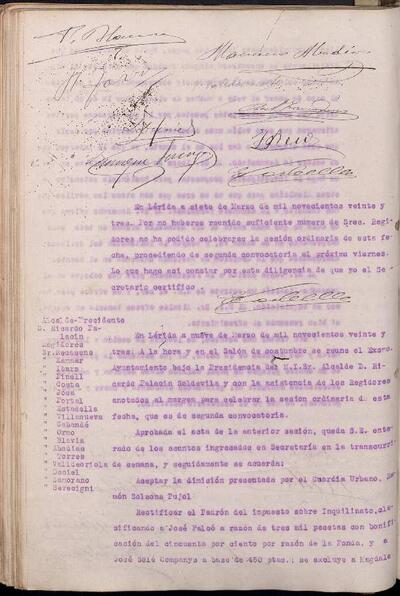 En Lérida a siete de Marzo de mil novecientos veinte y
tres. Por no haberse reunido suficiente número de Sres. Regi-
dores no ha podido celebrarse la sesión ordinaria de esta fe-
cha, procediendo de segunda convocatoria el próximo viernes.
Lo que hago así constar por esta diligencia de que yo el Se-
cretario certifico
Alcalde-Presidente
D. Ricardo Pa-
lacín
Regidores
Sr.
" Ibars
" Pinell
" Costa
" Rosa
" Portal
" Estadella
" Villanueva
" Sabandé
" Ormo
" Blavia
" Abadías
" Torres
" Valldeoriola
" Daniel
" Zamorano
" Serecigni
En Lérida a nueve de Marzo de mil novecientos veinte y
tres. A la hora y en el Salón de costumbre se reune el Excmo.
Ayuntamiento bajo la Presidencia del M.I.Sr. Alcalde D. Ri-
cardo Palacín Soldevila y con la asistencia de los Regidores
anotados al margen para celebrar la sesión ordinaria de esta
fecha, que es de segunda convocatoria.
Aprobada el acta de la anterior sesión, queda S.E. ente-
rado de los asuntos ingresados en Secretaría en la transcurri-
da semana, y seguidamente se acuerda:
Aceptar la dimisión presentada por el Guardia Urbano. Ra-
món Solsona Pujol
Rectificar el Padrón del impuesto sobre Inquilinato, cla-
sificando a José Falcó a razón de tres mil pesetas con bonifi-
cación del cincuenta por ciento por razón de la Fonda, y a
José Solé Companys a base de 450 ptas.; se excluye a Magdale